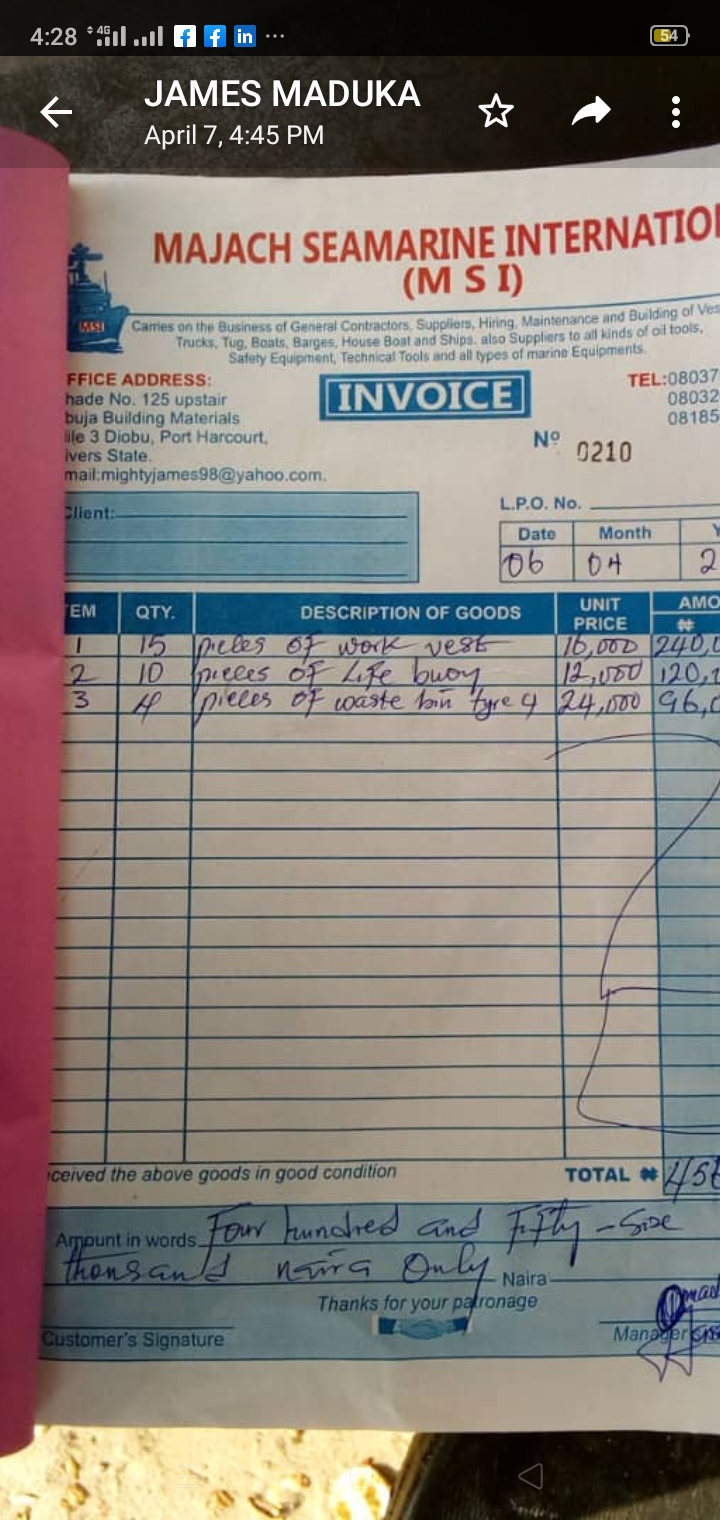 4:28 4G 54
JAMES MADUKA
April 7, 4:45 PM
MAJACH SEAMARINE INTERNATIO
(M S I)
MSI
Carries on the Business of General Contractors, Suppliers, Hiring, Maintenance and Building of Ves
Trucks, Tug, Boats, Barges, House Boat and Ships. also Suppliers to all kinds of oil tools,
Safety Equipment, Technical Tools and all types of marine Equipments.
FFICE ADDRESS:
hade No. 125 upstair
buja Building Materials
ile 3 Diobu, Port Harcourt,
ivers State.
mail:mightyjames98@yahoo.com.
INVOICE
TEL:08037
08032
08185
Nº 0210
Client:
L.P.O. No.
Date Month Y
06 04 2
EM QTY. DESCRIPTION OF GOODS UNIT PRICE AMO ₦
1 15 pieces of work vest 16,000 240,0
2 10 pieces of Life buoy 12,000 120,
3 4 pieces of waste bin tyre 4 24,000 96,0
ceived the above goods in good condition TOTAL ₦ 456
Amount in words Four hundred and Fifty-Six
thousand naira Only Naira
Thanks for your patronage
Customer's Signature
Manager